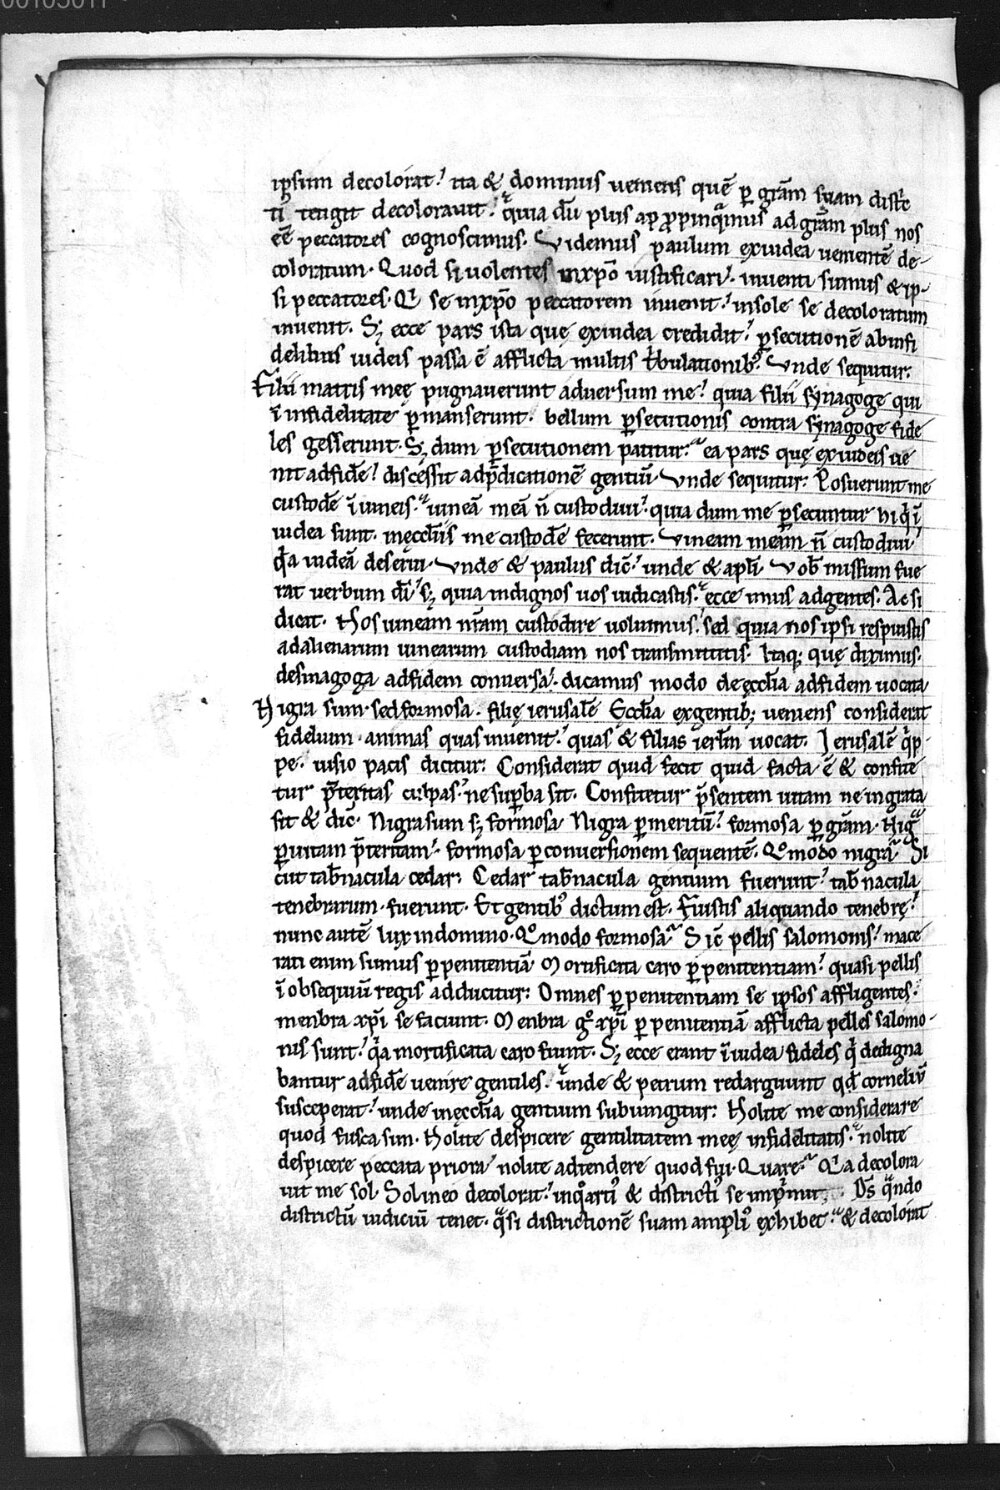 00103011
ip̄sum decolorat! ita & dominus ueniens quē ꝑ grām suam distric
ti tengit decolorauit. quia dū plus appropinquamus ad grām plus nos
eē peccatores cognoscimus. Videmus paulum exiudea uenientē de-
coloratum. Quod si uolentes inxp̄o iustificari! inuenti sumus & ip-
si peccatores. Q̇ se inxp̄o peccatorem inuenit! insole se decoloratum
inuenit. Sꝫ ecce pars ista quę exiudea credidit! ꝑsecutionē abinfi
delibus iudeis passa ē afflicta multis tb̄ulationibꝰ. Vnde sequitur:
Filii matris meę pugnauerunt aduersum me! quia filii synagogę qui
ī infidelitate ꝑmanserunt. bellum ꝑsecutionis contra synagogę fide
les gesserunt. Sꝫ dum ꝑsecutionem patitur. ea pars quę exiudeis ue
nit adfidē! discessit adp̄dicationē gentiū. Vnde sequitur: Posuerunt me
custodē ī uineis. uineā meā n̄ custodiui. quia dum me ꝑsecuntur hi q̇ ī
iudea sunt. inęccl̄iis me custodē fecerunt. Vineam meam n̄ custodiui
q̇a iudeā deserui. Vnde & paulus dic̄. unde & apl̄i. Vob̄ missum fue
rat uerbum dī! sꝫ quia indignos uos iudicastis. ecce imus adgentes. Ac si
dicat. Nos uineam nr̄am custodire uoluimus. sed quia nos ipsi respuistis
adalienarum uinearum custodiam nos transmittitis. Itaqꝫ quę diximus.
desinagoga adfidem conuersa. dicamus modo deęccl̄ia adfidem uocata
Nigra sum sed formosa. filię ierusalē Eccl̄ia exgentibꝫ ueniens considerat
fidelium animas quas inuenit! quas & filias ierl̄m uocat. Ierusalē q̇p-
pe. uisio pacis dicitur. Considerat quid fecit quid facta ē & confite
tur p̄teritas culpas. ne suꝑba sit. Confitetur p̄sentem uitam ne ingrata
sit & dic̄. Nigra sum sꝫ formosa. Nigra ꝑmeritū! formosa ꝑ grām. Nigra
ꝑuitam p̄teritam. formosa ꝑconuersionem sequentē. Qͦmodo nigra Si
cut tab̄nacula cedar. Cedar tab̄nacula gentium fuerunt! tab̄nacula
tenebrarum fuerunt. Et gentibꝰ dictum est. Fuistis aliquando tenebrę!
nunc autē lux indomino. Qͦmodo formosa Sic̄ pellis salomonis! mace
rati enim sumus ꝑpenitentiā Mortificata caro ꝑpenitentiam! quasi pellis
ī obsequiū regis adducitur: Omnes ꝑpenitentiam se ipsos affligentes.
menbra xp̄i se faciunt. Menbra gͦ xp̄i ꝑpenitentiā afflicta pelles salomo-
nis sunt! q̇a mortificata caro fiunt. Sꝫ ecce erant ī iudea fideles q̇ dedigna
bantur adfidē uenire gentiles. unde & petrum redarguunt qd̄ corneliū
susceperat! unde inęccl̄ia gentium subiungitur: Nolite me considerare
quod fusca sim. Nolite despicere gentilitatem meę infidelitatis. nolite
despicere peccata priora nolite adtendere quod fui. Quare. Q̇a decolora
uit me sol. Sol ineo decolorat! inqͦartiꝰ & districtiꝰ se imp̄mit. Ds̄ qͣndo
districtū iudiciū tenet. qͣsi districtionē suam ampliꝰ exhibet. & decolorat